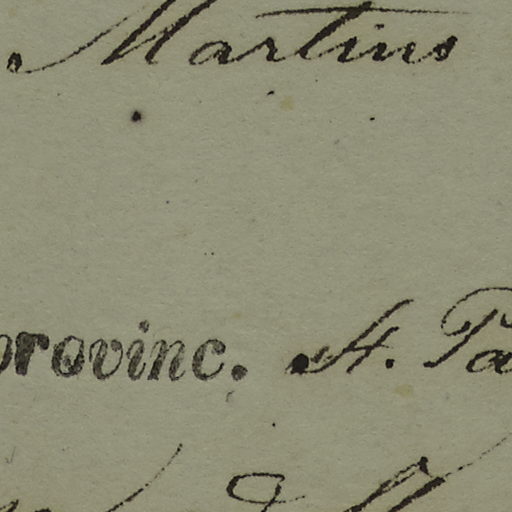 Martins
provinc. St. Pa